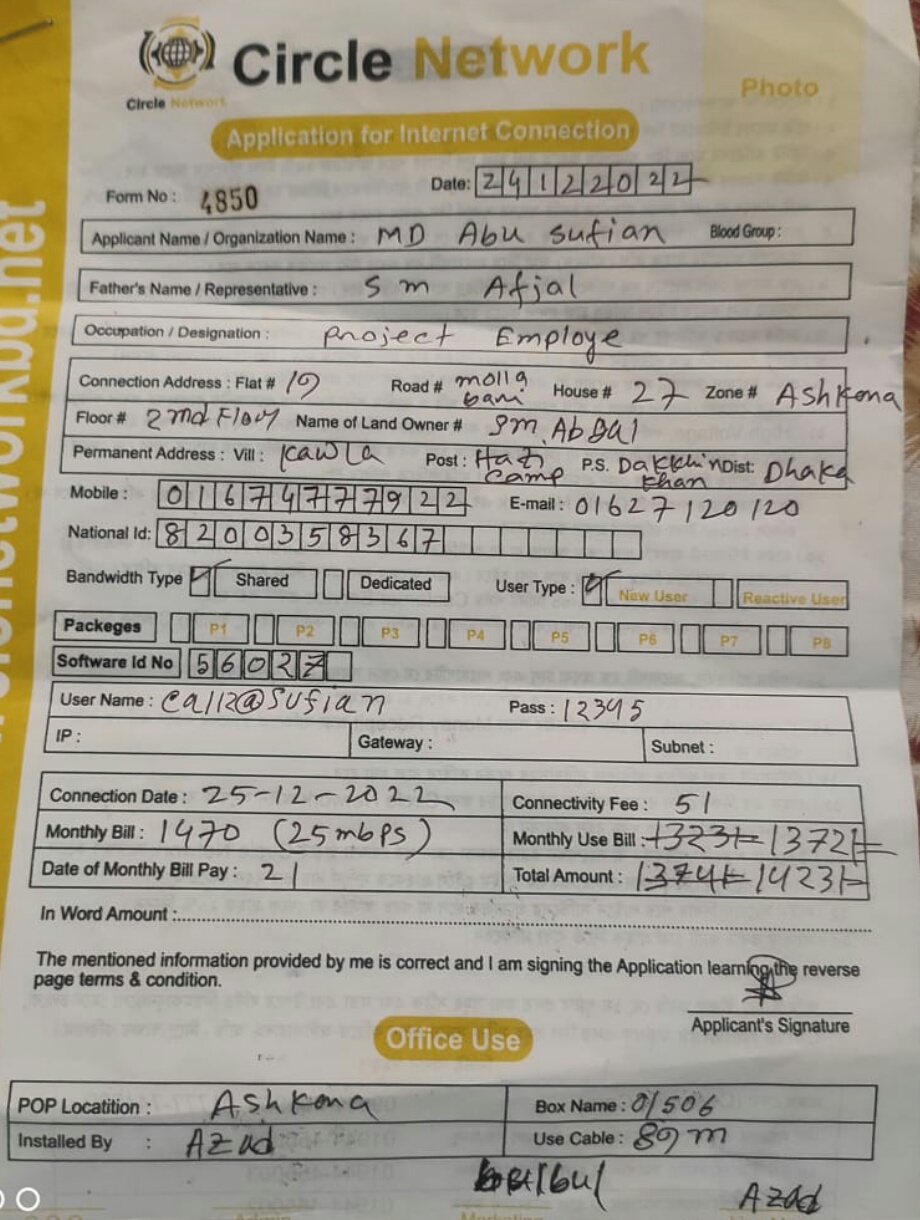 Circle Network
Circle Network
Photo
Application for Internet Connection
Form No : 4850 Date: 24122022
Applicant Name / Organization Name : MD Abu Sufian Blood Group :
Father's Name / Representative : S m Afjal
Occupation / Designation : Project Employe
Connection Address : Flat # Road # molla bari House # 27 Zone # Ashkona
Floor # 2nd Floor Name of Land Owner # Sm. Abgal
Permanent Address : Vill : Kawla Post : Hazi Camp P.S. Dakkhin Khan Dist: Dhaka
Mobile : 01674777922 E-mail : 01627120120
National Id: 8200358367
Bandwidth Type Shared Dedicated User Type : New User Reactive User
Packeges P1 P2 P3 P4 P5 P6 P7 P8
Software Id No 56027
User Name : Pass : 12345
IP : Gateway : Subnet :
Connection Date : 25-12-2022 Connectivity Fee : 51
Monthly Bill : 1470 (25mbps) Monthly Use Bill : 1323/= 1372/=
Date of Monthly Bill Pay : 21 Total Amount : 1374/= 1423/=
In Word Amount :
The mentioned information provided by me is correct and I am signing the Application learning the reverse
page terms & condition.
Applicant's Signature
Office Use
POP Locatition : Ashkona Box Name : 01506
Installed By : Azad Use Cable : 89 m
Azad